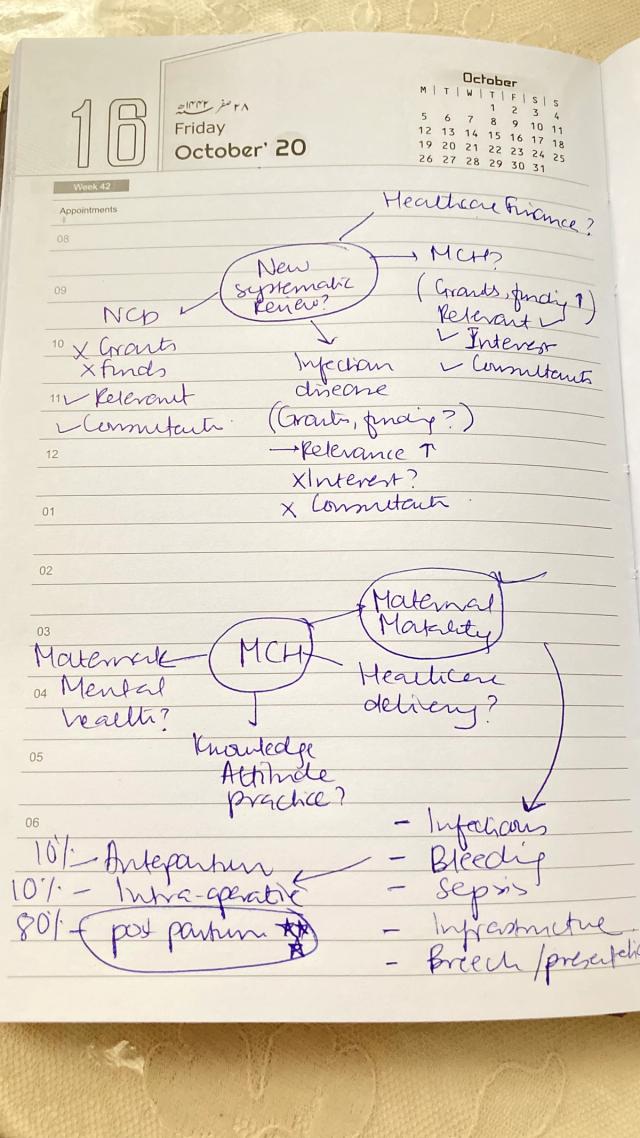 16
۲۸ صفر ۱۴۴۲ھ
Friday
October' 20
October
M | T | W | T | F | S | S
1 2 3 4
5 6 7 8 9 10 11
12 13 14 15 16 17 18
19 20 21 22 23 24 25
26 27 28 29 30 31
Week 42
Appointments
08
Healthcare Finance?
09
New
systematic
Review?
MCH?
(Grants, funding ↑)
Relevant ✓
✓ Interest
✓ Consultants
NCD
10
X Grants
X funds
11
✓ Relevant
✓ Consultants
Infection
disease
(Grants, funding?)
12
→ Relevance ↑
X Interest?
01
X Consultants
02
Maternal
Matality
03
MCH
Maternal
04
Mental
health?
Healthcare
delivery?
05
Knowledge
Attitude
practice?
06
- Infections
- Bleeding
- Sepsis
- Infrastructure
- Breech / presentatio
10% - Antepartum
10% - Intra-operative
80% - post partum ★★
★